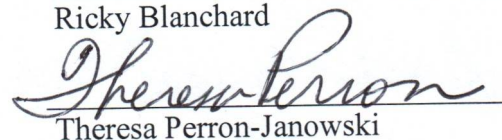 Ricky Blanchard
Theresa Perron
Theresa Perron-Janowski